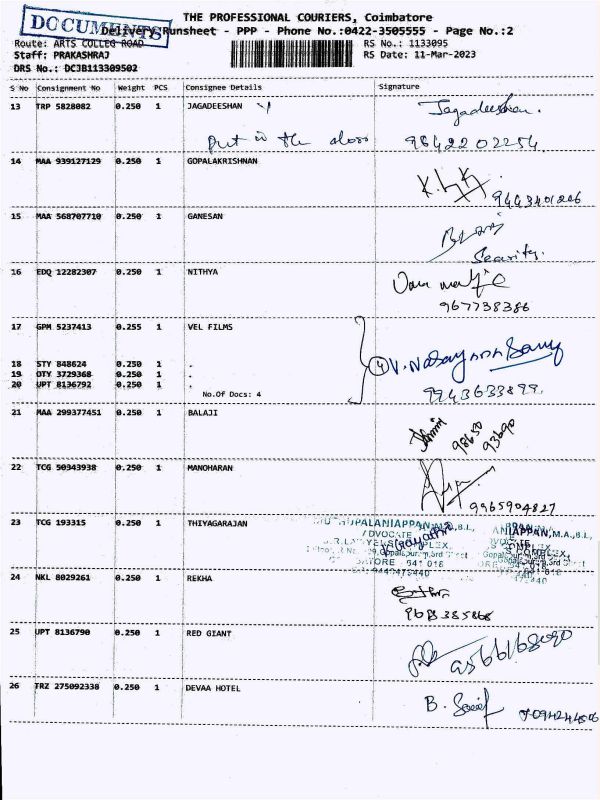 DOCUMENTS
THE PROFESSIONAL COURIERS, Coimbatore
Delivery Runsheet - PPP - Phone No.:0422-3505555 - Page No.:2
Route: ARTS COLLEG ROAD
RS No.: 1133095
Staff: PRAKASHRAJ
RS Date: 11-Mar-2023
DRS No.: DCJB113309502
S No Consignment No Weight PCS Consignee Details Signature
13 TRP 5828082 0.250 1 JAGADEESHAN Jagadeeshan.
Put in the door 9842202254
14 MAA 939127129 0.250 1 GOPALAKRISHNAN
9443401206
15 MAA 568707710 0.250 1 GANESAN
Security.
16 EDQ 12282307 0.250 1 NITHYA
967738386
17 GPM 5237413 0.255 1 VEL FILMS
18 STY 848624 0.250 1 . 4
19 OTY 3729368 0.250 1 .
20 UPT 8136792 0.250 1 .
No.Of Docs: 4 9943633899.
21 MAA 299377451 0.250 1 BALAJI
98650
93690
22 TCG 50343938 0.250 1 MANOHARAN
9965904827
23 TCG 193315 0.250 1 THIYAGARAJAN
PALANIAPPAN, M.A., B.L.,
ADVOCATE
IAPPAN, M.A., B.L.,
COMPLEX,
641 018
24 NKL 8029261 0.250 1 REKHA
25 UPT 8136790 0.250 1 RED GIANT
26 TRZ 275092338 0.250 1 DEVAA HOTEL
B.